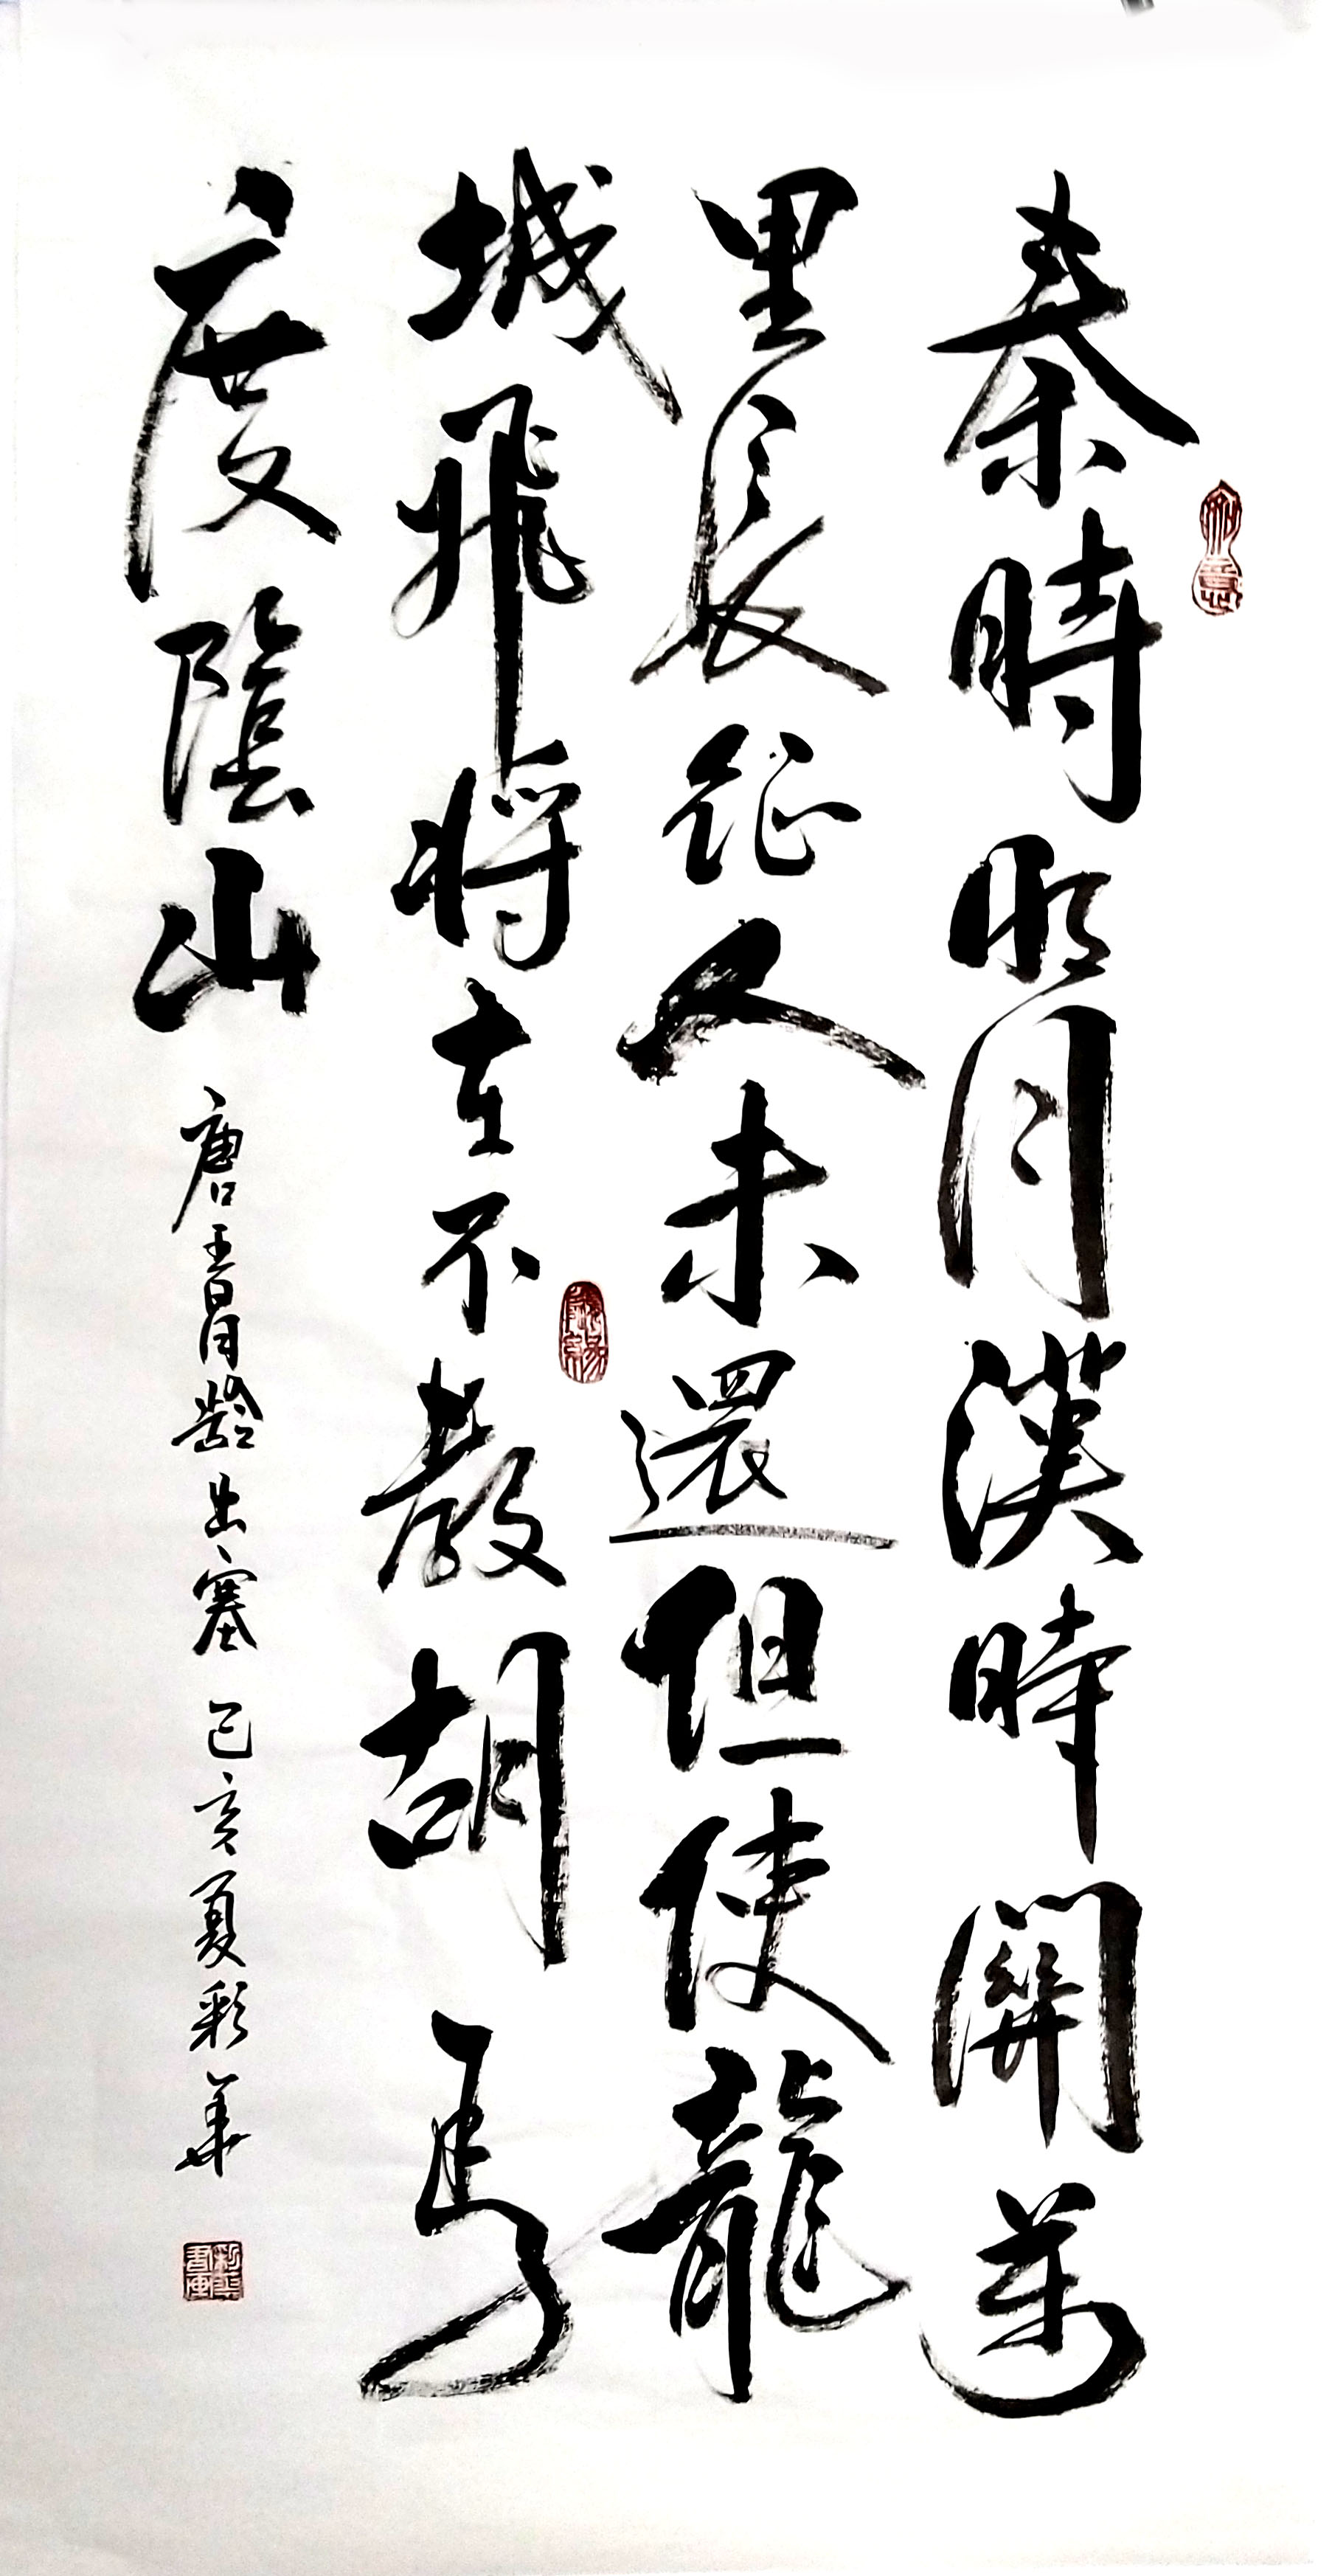 秦時明月漢時關萬
里長征人未還但使龍
城飛將在不教胡馬
度陰山
唐王昌齡出塞己亥夏彩華